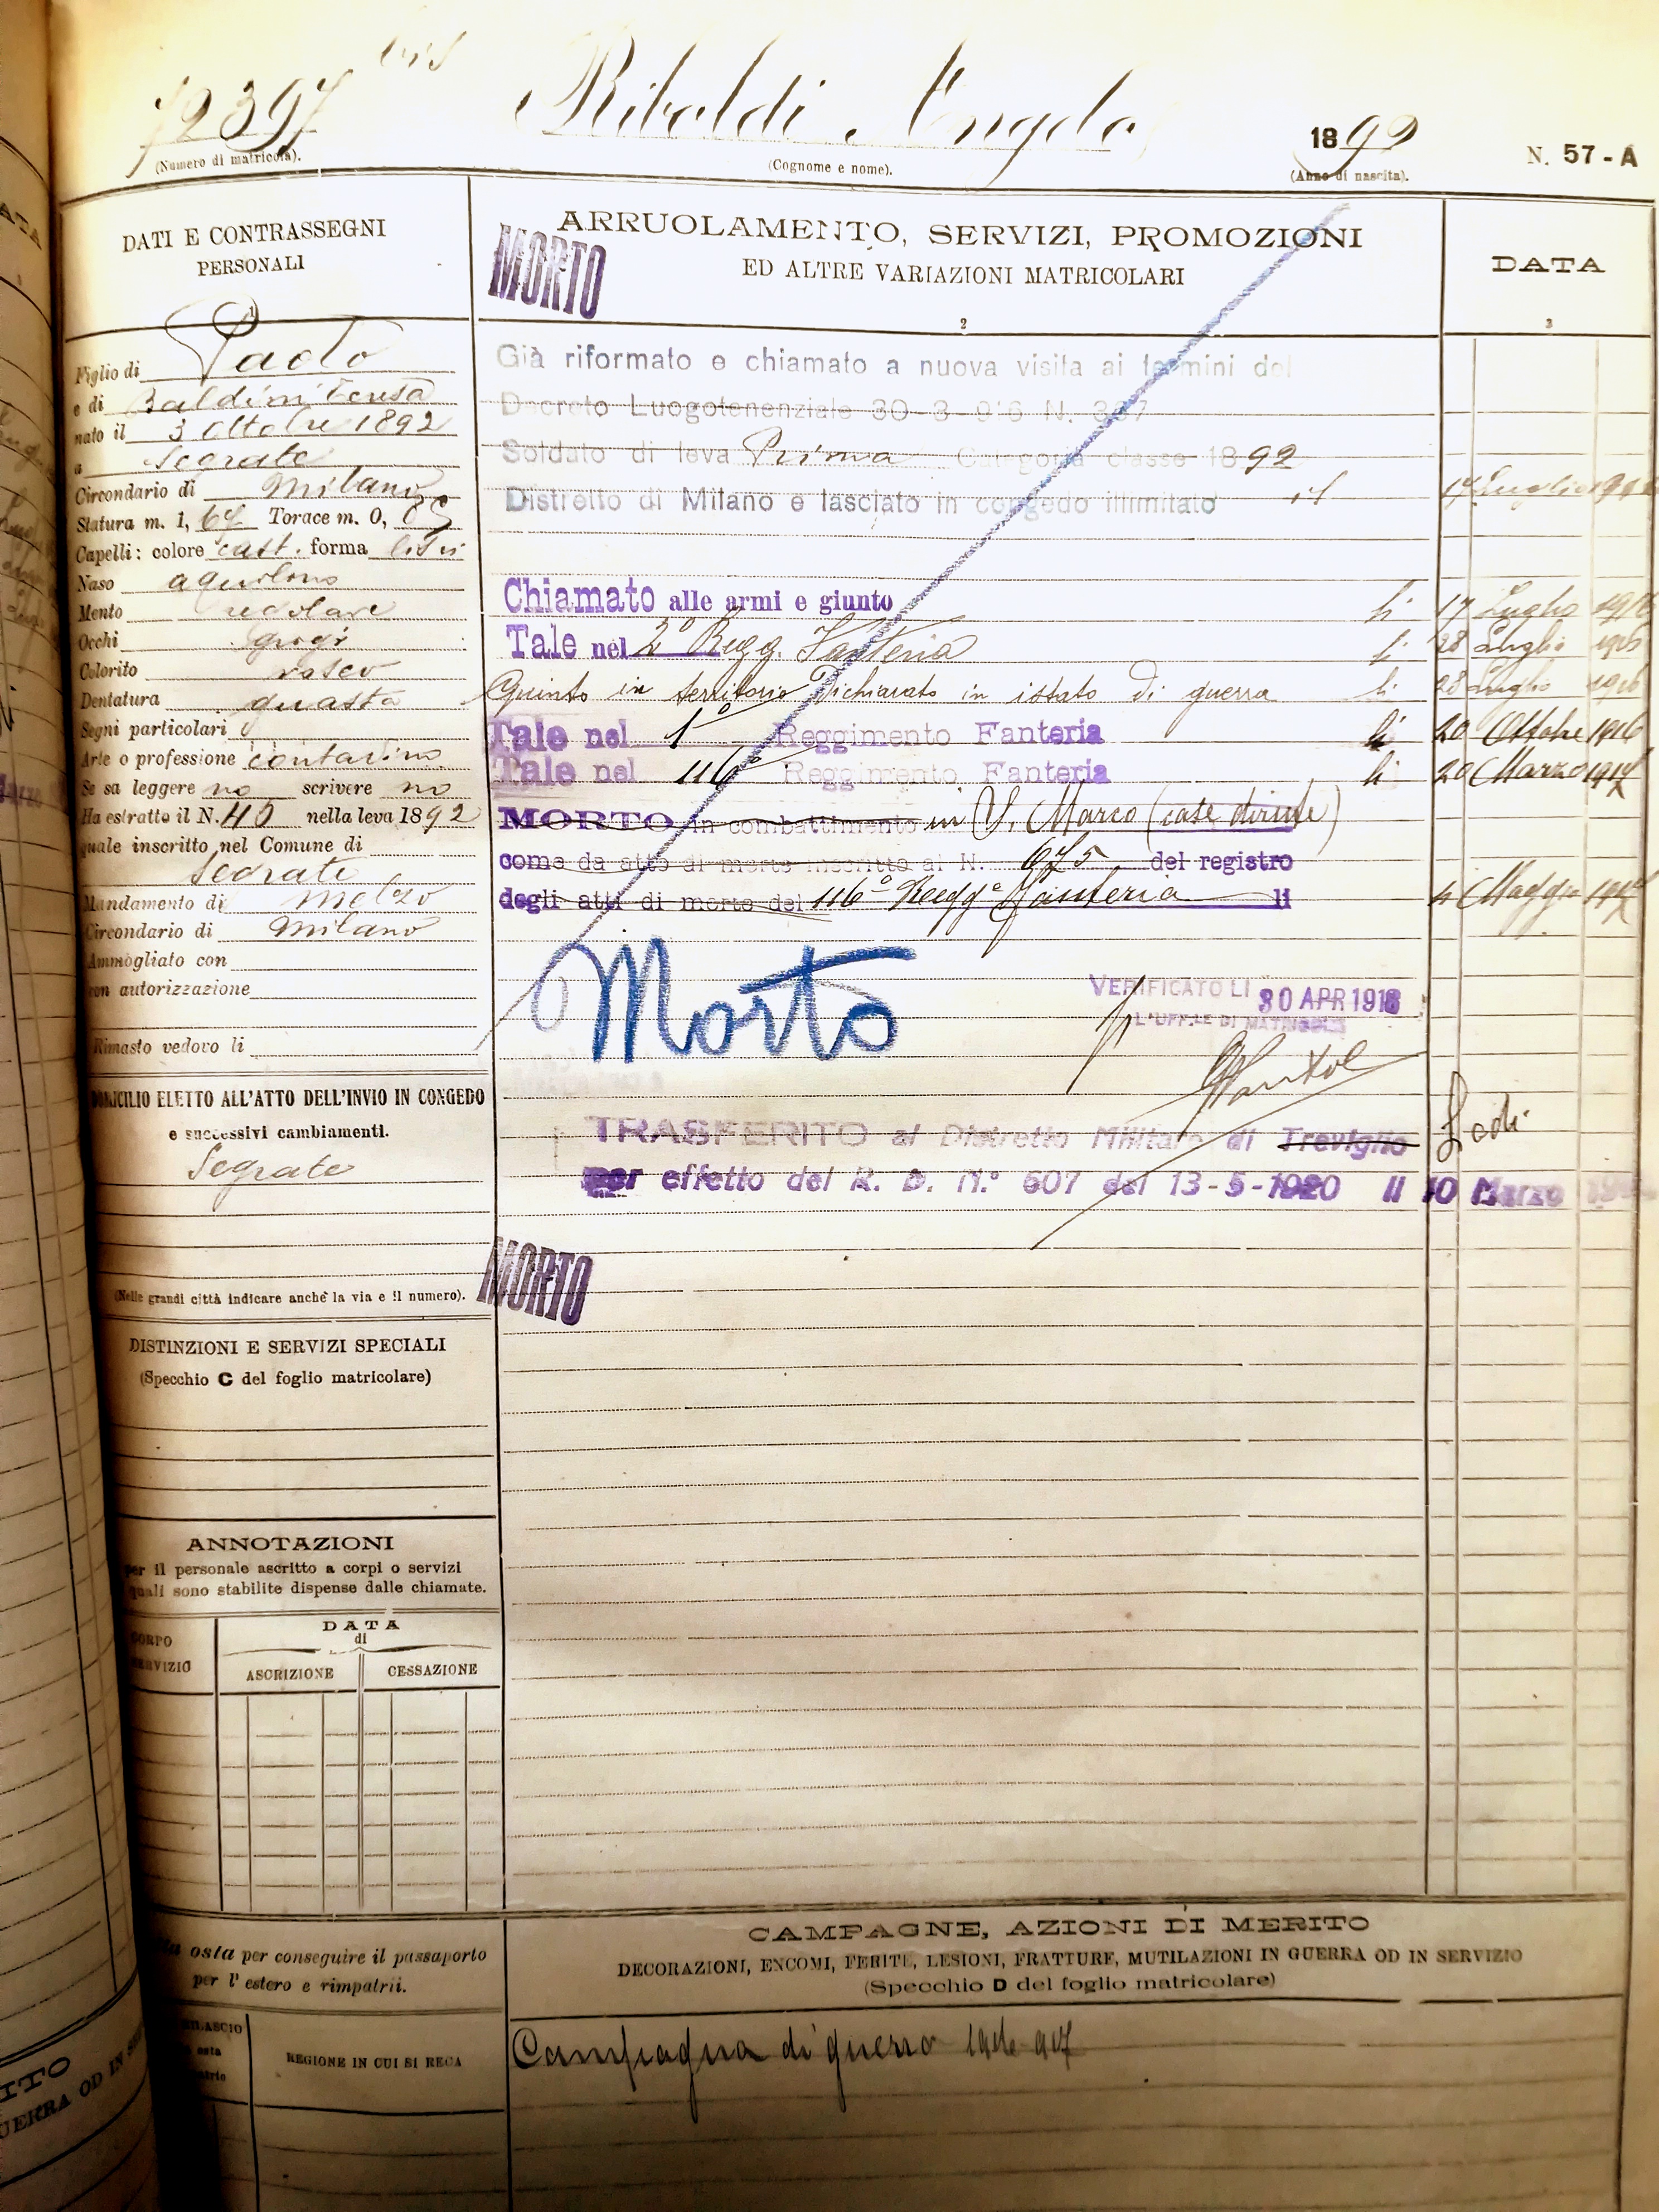 72397 bis
Ribaldi Angelo
1892
N. 57-A
(Numero di matricola).
(Cognome e nome).
(Anno di nascita).
DATI E CONTRASSEGNI
PERSONALI
Figlio di Paolo
e di Baldini Teresa
nato il 3 Ottobre 1892
a Segrate
Circondario di Milano
Statura m. 1, 67 Torace m. 0, 85
Capelli: colore cast. forma lisci
Naso aquilino
Mento regolare
Occhi grigi
Colorito roseo
Dentatura guasta
Segni particolari
Arte o professione contadino
Se sa leggere no scrivere no
Ha estratto il N. 40 nella leva 1892
quale inscritto nel Comune di
Segrate
Mandamento di Melzo
Circondario di Milano
Ammogliato con
con autorizzazione
Rimasto vedovo li
DOMICILIO ELETTO ALL'ATTO DELL'INVIO IN CONGEDO
e successivi cambiamenti.
Segrate
(Nelle grandi città indicare anche la via e il numero).
DISTINZIONI E SERVIZI SPECIALI
(Specchio C del foglio matricolare)
ANNOTAZIONI
per il personale ascritto a corpi o servizi
quali sono stabilite dispense dalle chiamate.
CORPO
SERVIZIO
DATA
di
ASCRIZIONE
CESSAZIONE
osta per conseguire il passaporto
per l'estero e rimpatrii.
RILASCIO
REGIONE IN CUI SI RECA
ARRUOLAMENTO, SERVIZI, PROMOZIONI
ED ALTRE VARIAZIONI MATRICOLARI
2
MORTO
DATA
3
Già riformato e chiamato a nuova visita ai termini del
Decreto Luogotenenziale 30-3-916 N. 367
Soldato di leva Prima Categoria classe 1892
Distretto di Milano e lasciato in congedo illimitato il 17 Luglio
Chiamato alle armi e giunto li 17 Luglio 1916
Tale nel 2° Regg. Fanteria li 28 Luglio 1916
Giunto in territorio dichiarato in istato di guerra li 28 Luglio 1916
Tale nel 1° Reggimento Fanteria li 20 Ottobre 1916
Tale nel 116° Reggimento Fanteria li 20 Marzo 1917
MORTO in combattimento in S. Marco (case dirute)
come da atto di morte inscritto al N. 675 del registro
degli atti di morte del 116° Regg° Fanteria li 4 Maggio 1917
Morto
VERIFICATO LI 30 APR 1918
L'UFF.LE DI MATRICOLA
TRASFERITO al Distretto Militare di Treviglio Lodi
per effetto del R. D. N.° 607 del 13-5-1920 li 10 Marzo
MORTO
CAMPAGNE, AZIONI DI MERITO
DECORAZIONI, ENCOMI, FERITE, LESIONI, FRATTURE, MUTILAZIONI IN GUERRA OD IN SERVIZIO
(Specchio D del foglio matricolare)
Campagna di guerra 1916 917